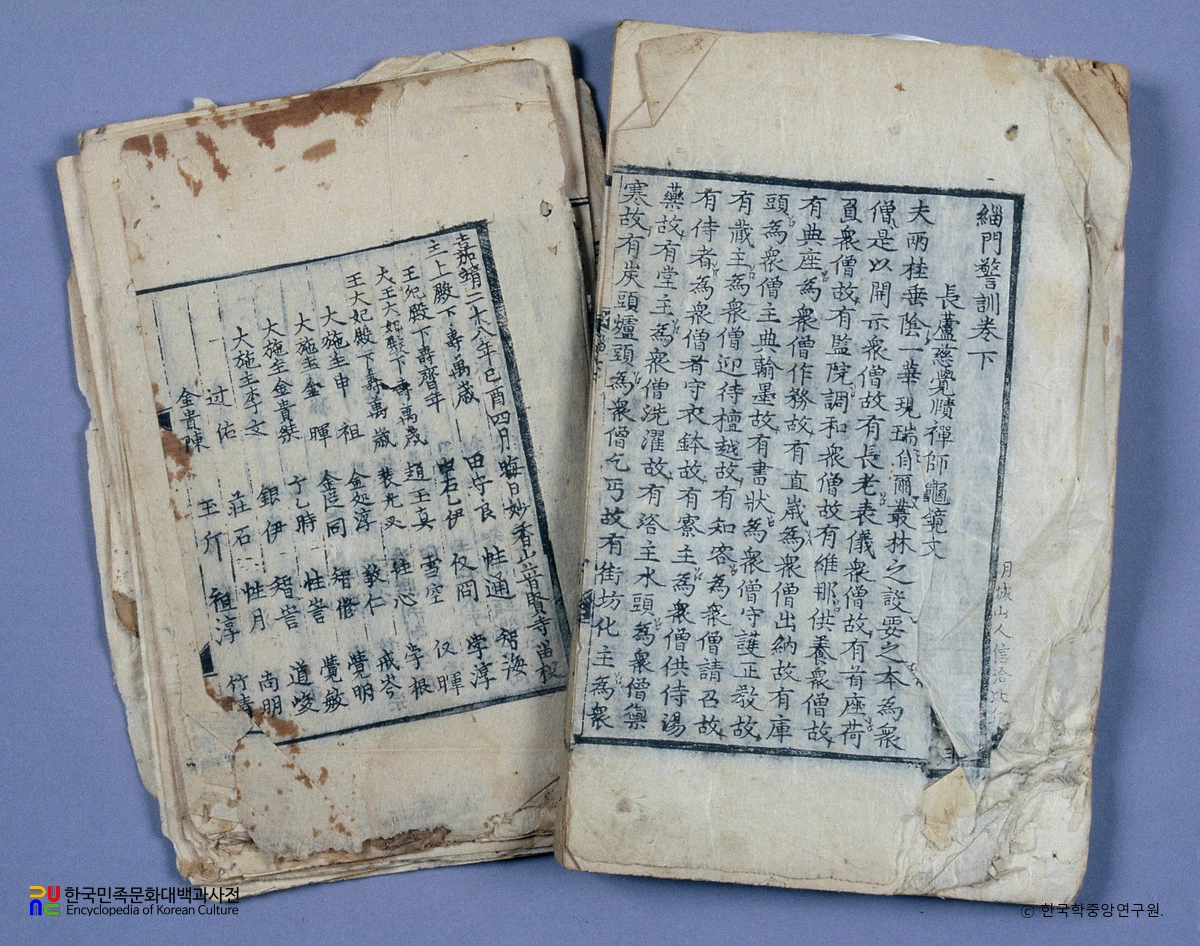 緇門警訓卷下
長蘆慈覺賾禪師龜鏡文
夫兩桂垂陰一華現瑞自爾叢林之設要之本為衆
僧是以開示衆僧故有長老表儀衆僧故有首座荷
負衆僧故有監院調和衆僧故有維那供養衆僧故
有典座為衆僧作務故有直歲為衆僧出納故有庫
頭為衆僧主典翰墨故有書狀為衆僧守護正教故
有藏主為衆僧迎待檀越故有知客為衆僧請召故
有侍者為衆僧看守衣鉢故有寮主為衆僧供侍湯
藥故有堂主為衆僧洗濯故有浴主水頭為衆僧禦
寒故有炭頭爐頭為衆僧乞丐故有街坊化主為衆
月城山人信洽
嘉靖二十八年己酉四月晦日妙香山普賢寺留板
主上殿下壽萬歲 田守良 性通 智海
王妃殿下壽齊年 石乙伊 学淳
大王大妃殿下壽萬歲 趙王真 雪空 暉
王大妃殿下壽萬歲 裴光 性心 学根
大施主申祖 金処淳 敬仁 戒岑
大施主金暉 金 同 智修 覺明
大施主金貴 乙時 性訔 覺敏
大施主李文 銀伊 智訔 道峻
过佑 莊石 性月 尚明
金貴陳 玉斤 祖淳 竹清
한국민족문화대백과사전
Encyclopedia of Korean Culture
ⓒ 한국학중앙연구원.